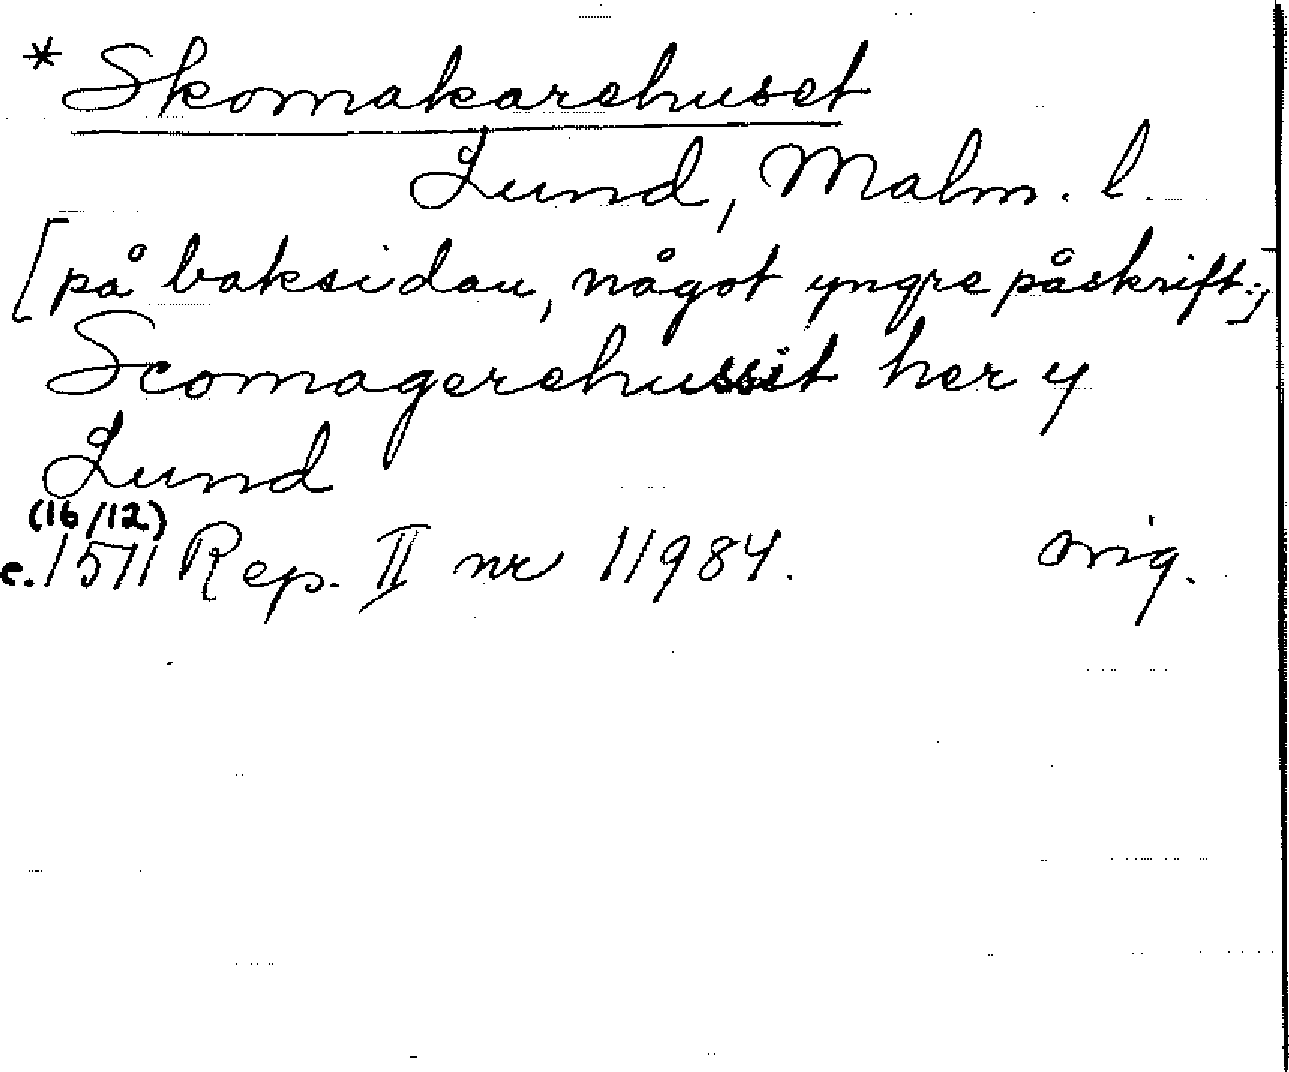 * Skomakarehuset
Lund, Malm. l.
[på baksidan, något yngre påskrift:]
Scomagerehussit her y
Lund
(16/12)
c. 1511 Rep. II nr 11984. orig.